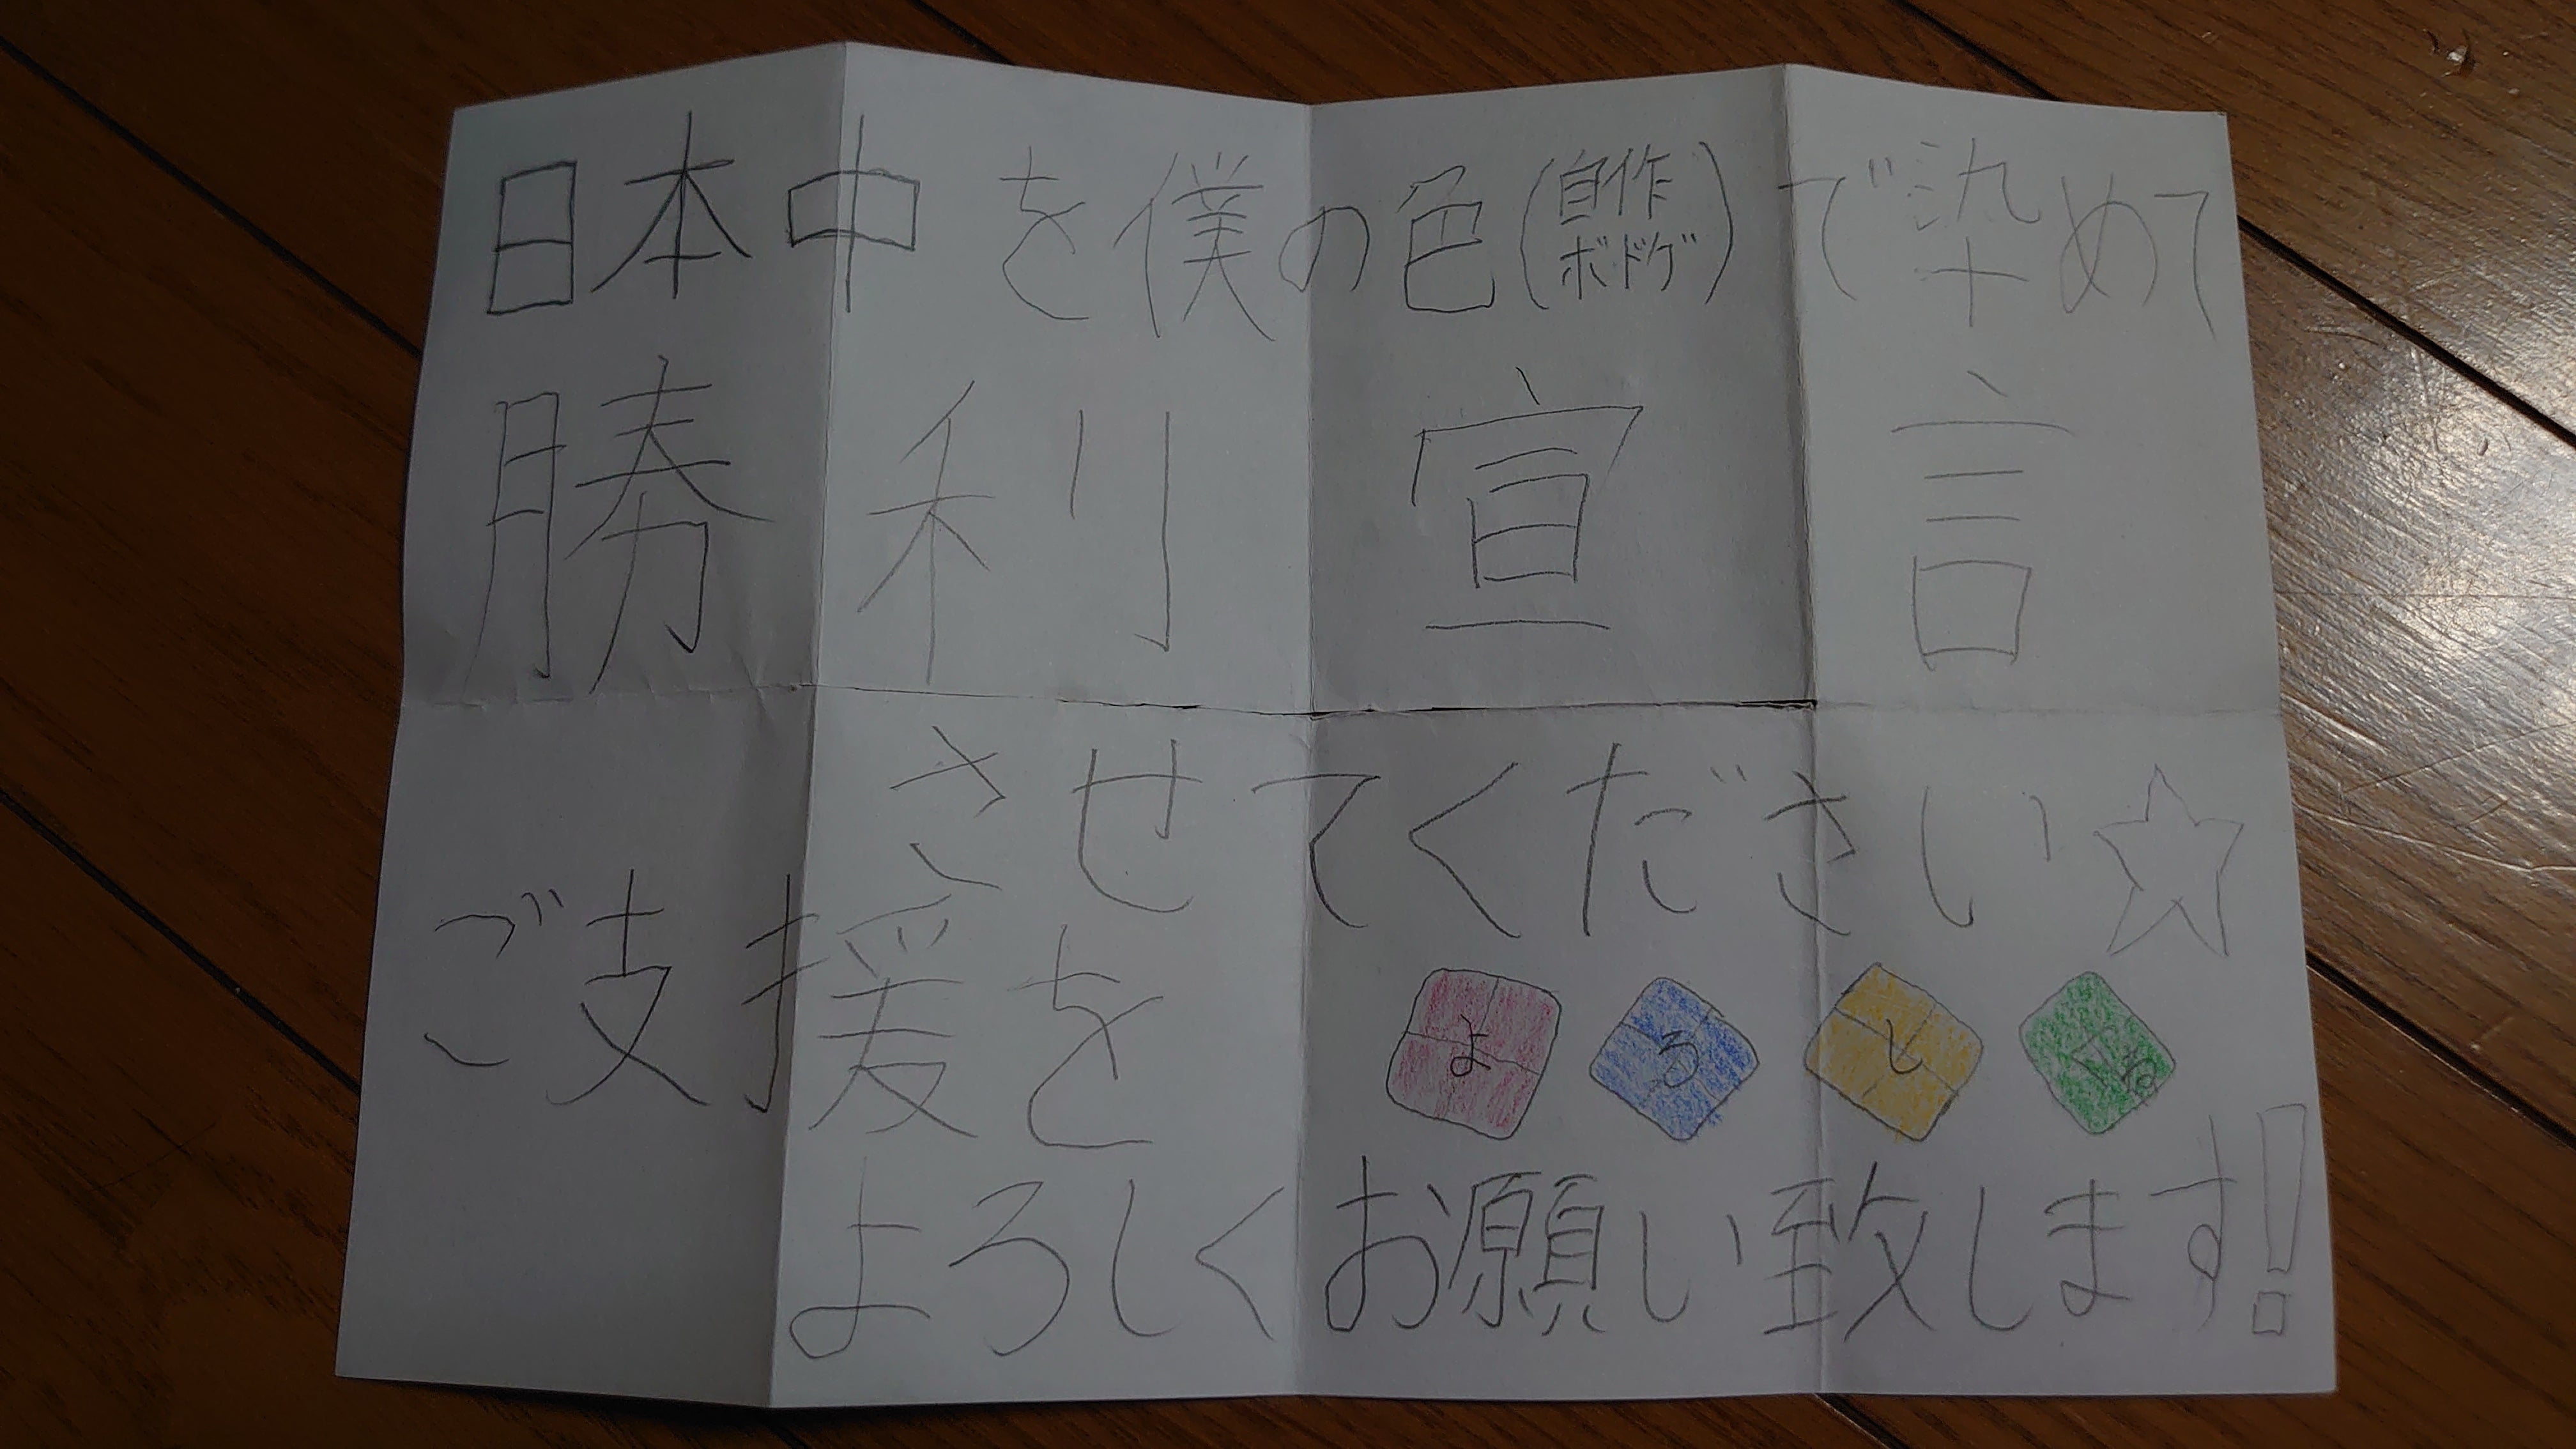 日本中を僕の色(自作ボドゲ)で染めて
勝利宣言
させてください☆
ご支援を
よ ろ し くね
よろしくお願い致します!